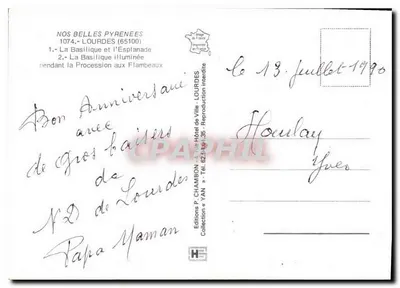 NOS BELLES PYRENEES
1074.- LOURDES (65100)
1.- La Basilique et l'Esplanade
2.- La Basilique illuminée
pendant la Procession aux Flambeaux
Bon Anniversaire
avec
de gros baisers
de
N.D de Lourdes
Papa Maman
Editions P. CHAMBON Hôtel de Ville - LOURDES
Collection « YAN » Reproduction interdite
le 13 juillet 1990
Houlay
Yves
CPAPHIL